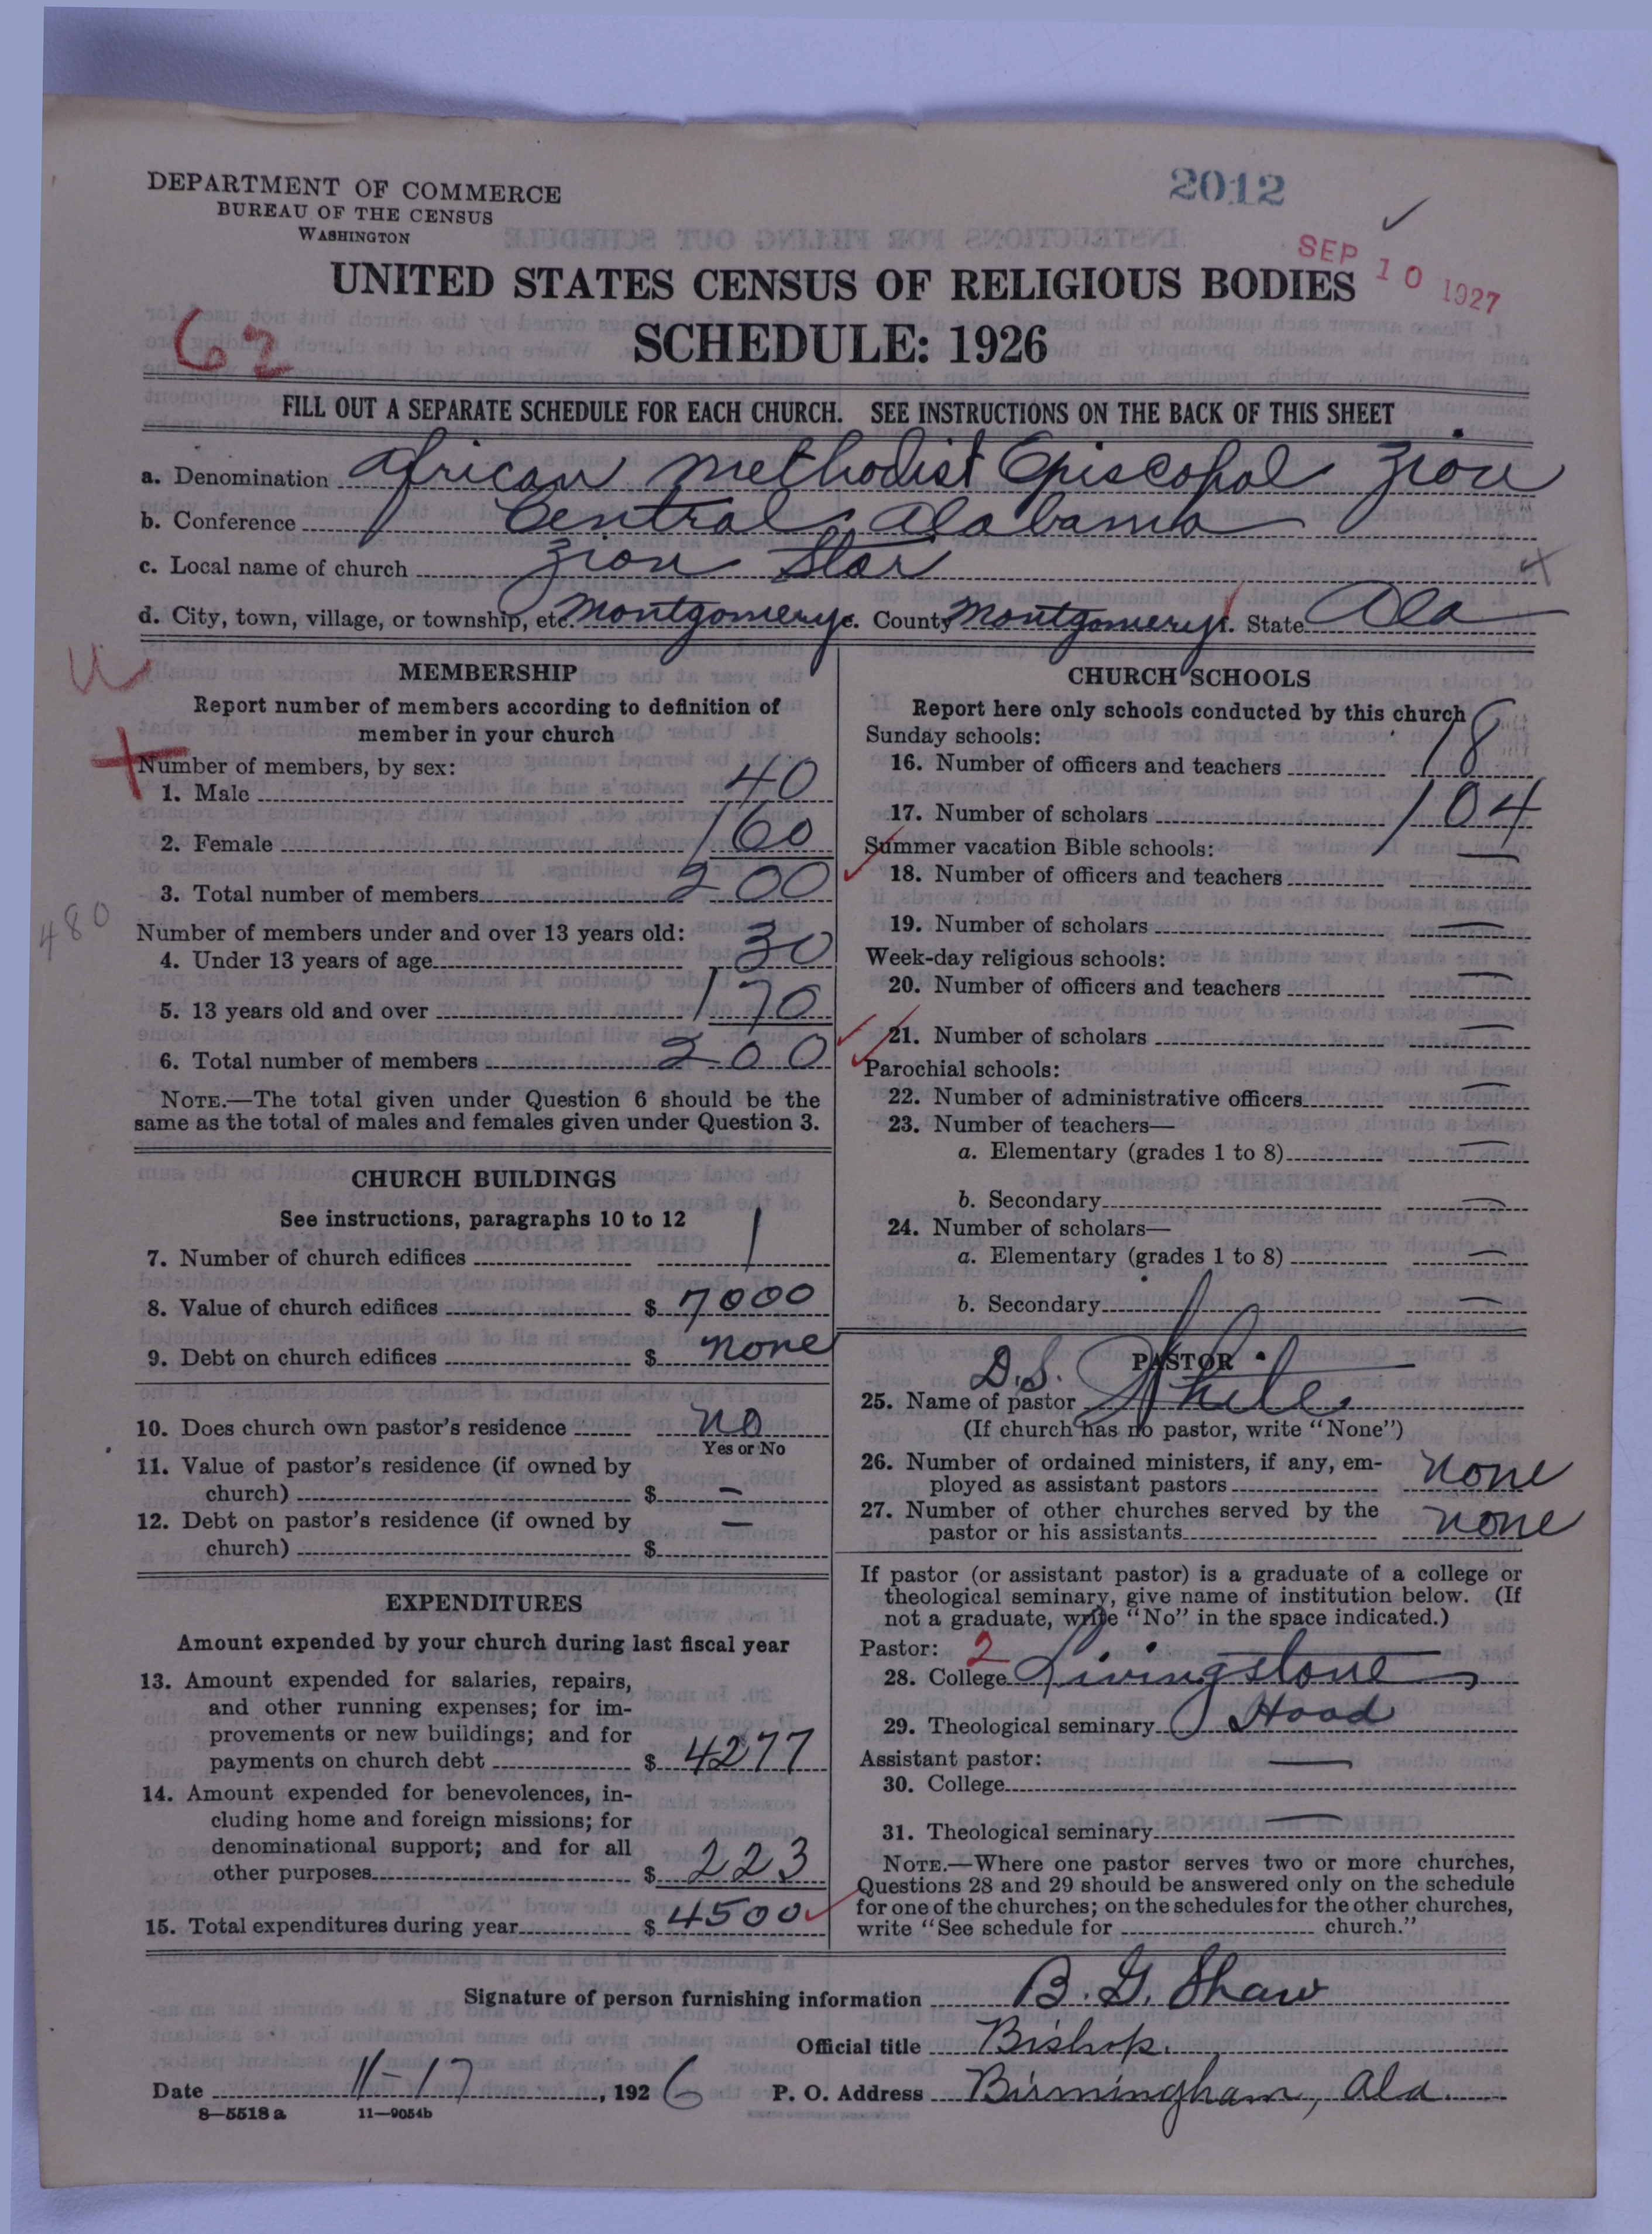 DEPARTMENT OF COMMERCE
BUREAU OF THE CENSUS
WASHINGTON
2012
SEP 10 1927
UNITED STATES CENSUS OF RELIGIOUS BODIES
SCHEDULE: 1926
62
FILL OUT A SEPARATE SCHEDULE FOR EACH CHURCH. SEE INSTRUCTIONS ON THE BACK OF THIS SHEET
a. Denomination African Methodist Episcopal Zion
b. Conference Central Alabama
c. Local name of church Zion Star
d. City, town, village, or township, etc. Montgomery e. County Montgomery f. State Ala
MEMBERSHIP
Report number of members according to definition of
member in your church
Number of members, by sex:
1. Male 40
2. Female 160
3. Total number of members 200
480
Number of members under and over 13 years old:
4. Under 13 years of age 30
5. 13 years old and over 170
6. Total number of members 200
NOTE.—The total given under Question 6 should be the
same as the total of males and females given under Question 3.
CHURCH BUILDINGS
See instructions, paragraphs 10 to 12
7. Number of church edifices 1
8. Value of church edifices $ 7000
9. Debt on church edifices $ none
10. Does church own pastor's residence no
Yes or No
11. Value of pastor's residence (if owned by
church) $ —
12. Debt on pastor's residence (if owned by
church) $ —
EXPENDITURES
Amount expended by your church during last fiscal year
13. Amount expended for salaries, repairs,
and other running expenses; for im-
provements or new buildings; and for
payments on church debt $ 4277
14. Amount expended for benevolences, in-
cluding home and foreign missions; for
denominational support; and for all
other purposes $ 223
15. Total expenditures during year $ 4500
CHURCH SCHOOLS
Report here only schools conducted by this church
Sunday schools:
16. Number of officers and teachers 18
17. Number of scholars 104
Summer vacation Bible schools:
18. Number of officers and teachers —
19. Number of scholars —
Week-day religious schools:
20. Number of officers and teachers —
21. Number of scholars —
Parochial schools:
22. Number of administrative officers —
23. Number of teachers—
a. Elementary (grades 1 to 8) —
b. Secondary —
24. Number of scholars—
a. Elementary (grades 1 to 8) —
b. Secondary —
PASTOR
25. Name of pastor D.S. White
(If church has no pastor, write "None")
26. Number of ordained ministers, if any, em-
ployed as assistant pastors none
27. Number of other churches served by the
pastor or his assistants none
If pastor (or assistant pastor) is a graduate of a college or
theological seminary, give name of institution below. (If
not a graduate, write "No" in the space indicated.)
Pastor: 2
28. College Livingstone
29. Theological seminary Hood
Assistant pastor:
30. College —
31. Theological seminary —
NOTE.—Where one pastor serves two or more churches,
Questions 28 and 29 should be answered only on the schedule
for one of the churches; on the schedules for the other churches,
write "See schedule for church."
Signature of person furnishing information B. G. Shaw
Official title Bishop.
Date 11-17, 1926 P. O. Address Birmingham, Ala.
8—5518a 11—9054b